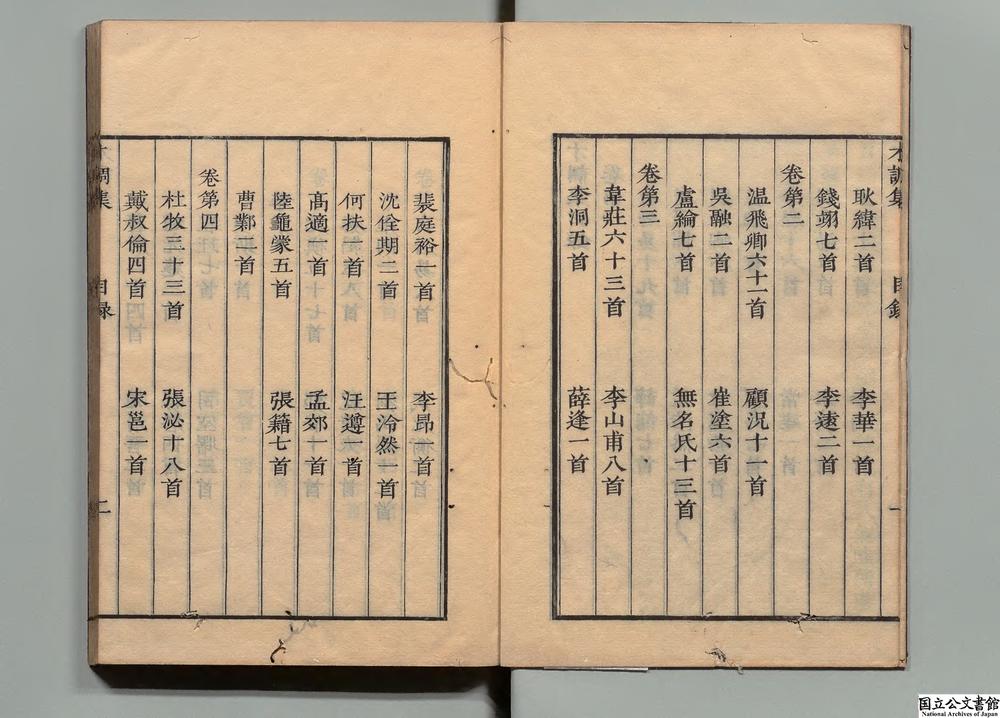 才調集 目錄 一
耿緯二首 李華一首
錢翊七首 李逺二首
卷第二
温飛卿六十一首 顧況十一首
吳融二首 崔塗六首
盧綸七首 無名氏十三首
卷第三
韋莊六十三首 李山甫八首
李洞五首 薛逢一首
裴庭裕一首 李昂一首
沈佺期二首 王泠然一首
何扶一首 汪遵一首
高適一首 孟郊一首
陸龜蒙五首 張籍七首
曹鄴二首
卷第四
杜牧三十三首 張泌十八首
戴叔倫四首 宋邕一首
才調集 目録 二
国立公文書館
National Archives of Japan